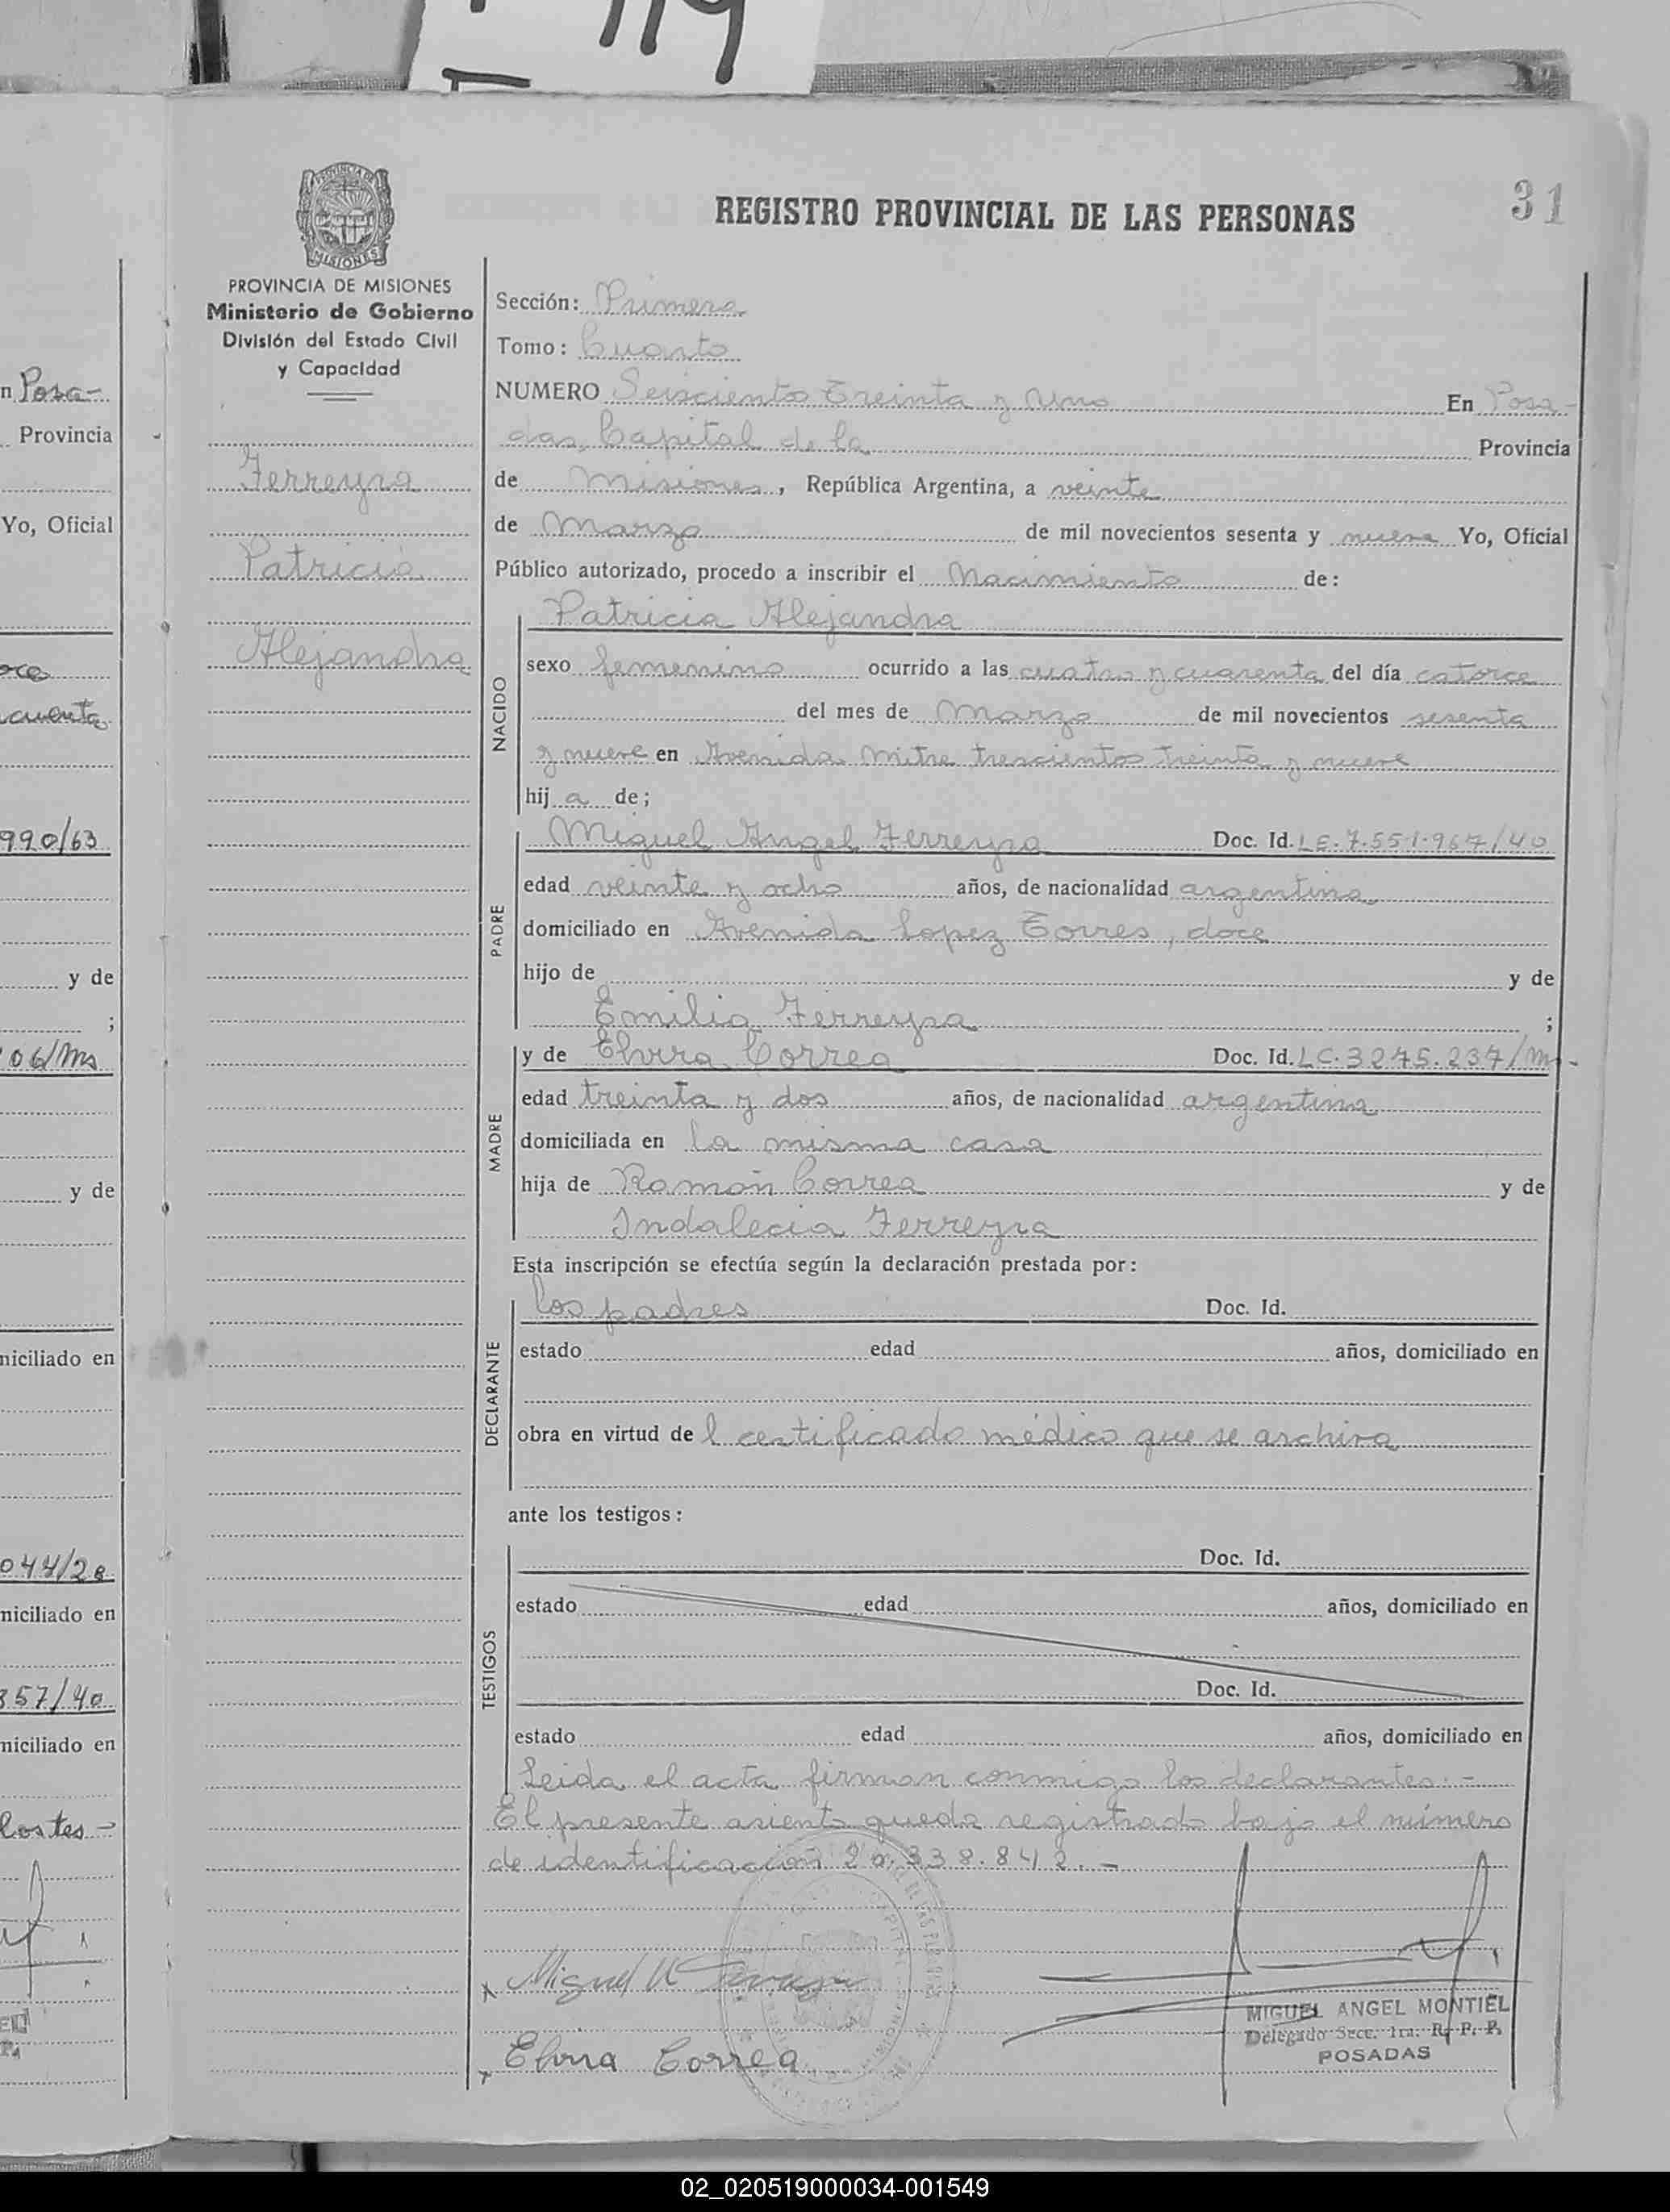 119
REGISTRO PROVINCIAL DE LAS PERSONAS
31
PROVINCIA DE
MISIONES
PROVINCIA DE MISIONES
Ministerio de Gobierno
División del Estado Civil
y Capacidad
Ferreyra
Patricia
Alejandra
Sección: Primera
Tomo: Cuarto
NUMERO Seiscientos Treinta y Uno En Posa-
das, Capital de la Provincia
de Misiones, República Argentina, a veinte
de Marzo de mil novecientos sesenta y nueve Yo, Oficial
Público autorizado, procedo a inscribir el Nacimiento de:
NACIDO
Patricia Alejandra
sexo femenino ocurrido a las cuatro y cuarenta del día catorce
del mes de Marzo de mil novecientos sesenta
y nueve en Avenida Mitre trescientos treinta y nueve
hij a de;
PADRE
Miguel Angel Ferreyra Doc. Id. LE. 7.551.967/40
edad veinte y ocho años, de nacionalidad argentina
domiciliado en Avenida Lopez Torres, doce
hijo de y de
Emilia Ferreyra ;
MADRE
y de Elvira Correa Doc. Id. LC. 3245.237/Ms-
edad treinta y dos años, de nacionalidad argentina
domiciliada en la misma casa
hija de Ramón Correa y de
Indalecia Ferreyra
Esta inscripción se efectúa según la declaración prestada por:
DECLARANTE
los padres Doc. Id.
estado edad años, domiciliado en
obra en virtud de l certificado médico que se archiva
ante los testigos:
TESTIGOS
Doc. Id.
estado edad años, domiciliado en
Doc. Id.
estado edad años, domiciliado en
Leida el acta firman conmigo los declarantes.-
El presente asiento queda registrado bajo el número
de identificación 20.338.842.-
Miguel A Ferreyra
Elvira Correa
MIGUEL ANGEL MONTIEL
Delegado Secc. 1ra. R. P. P.
POSADAS
n Posa-
Provincia
Yo, Oficial
cuenta
990/63
y de
;
06/Ms
y de
niciliado en
044/28
niciliado en
357/40
niciliado en
02_020519000034-001549